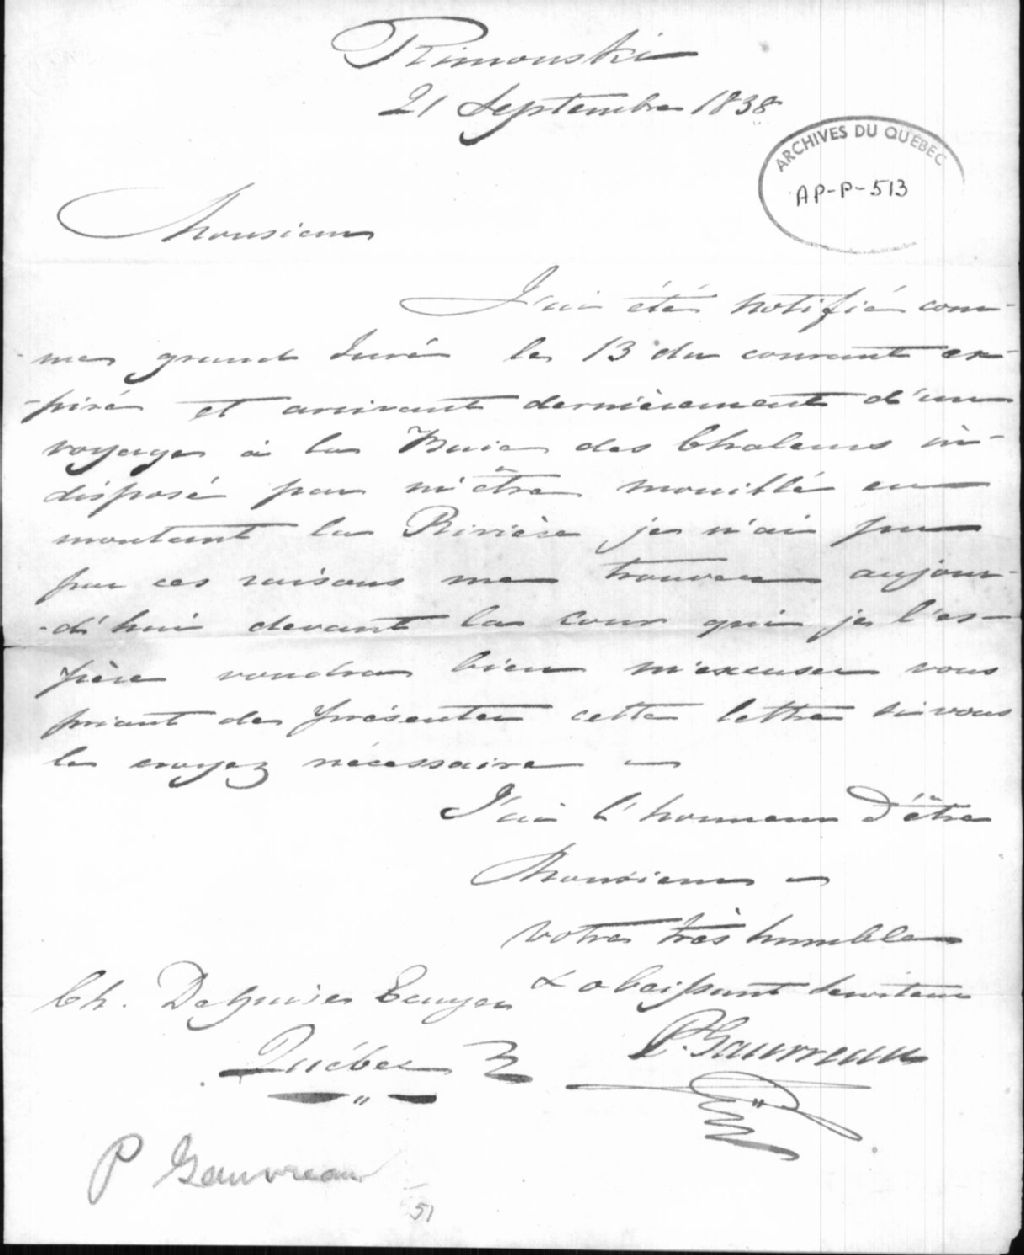 Rimouski
21 Septembre 1838
ARCHIVES DU QUÉBEC
AP-P-513
Monsieur
J'ai été notifié com-
me grand Juré le 13 du courant ex-
-piré et arrivant dernièrement d'un
voyage à la Baie des Chaleurs in-
disposé par m'être mouillé en
montant la Rivière je n'ai pu
par ces raisons me trouver aujour-
-d'hui devant la cour qui je l'es-
père voudra bien m'excuser vous
priant de présenter cette lettre si vous
le croyez nécessaire –
J'ai l'honneur d'être
Monsieur –
votre très humble
& obeissant serviteur
Ch. Deguise Ecuyer
P. Gauvreau
Québec
P Gauvreau
51